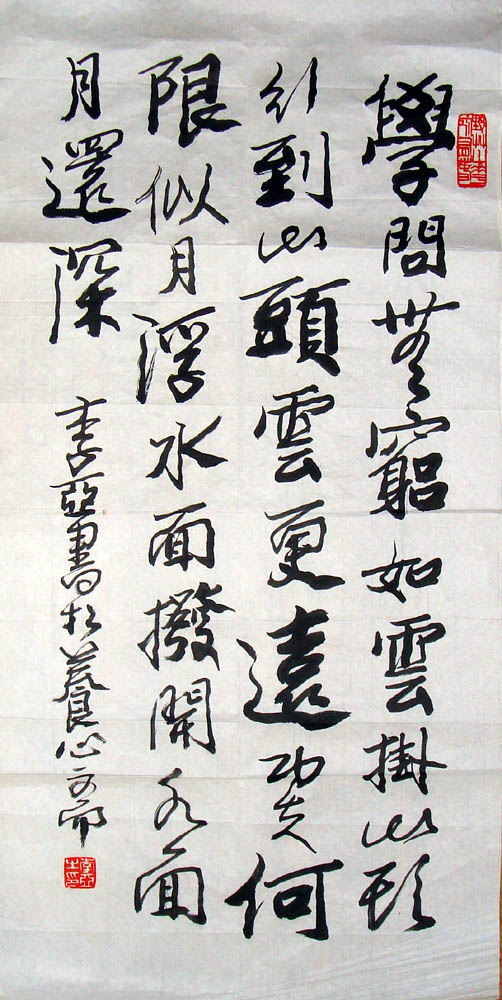 學問無窮如雲掛山頂
行到山頭雲更遠功夫何
限似月浮水面撥開水面
月還深
李亞書於養心齋